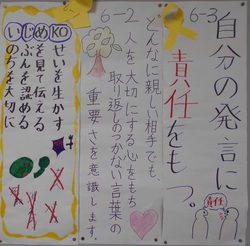 6-3
自分の発言に
責任をもつ。
責任
6-2
どんなに親しい相手でも、
人を大切にする心をもち
取り返しのつかない言葉の
重要さを意識します。
いじめKO
せいを生かす
を見て伝える
ぶんを認める
のちを大切に